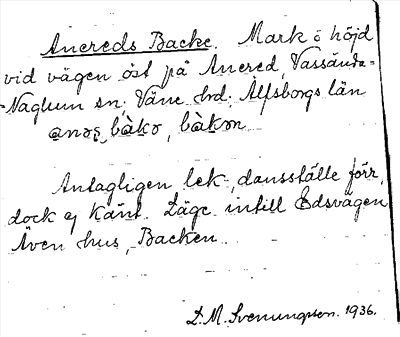 Anereds Backe. Mark o höjd
vid vägen öst på Anered, Vassända-
-Naglum sn. Väne hd. Älfsborgs län
bàkə, bàkən
Antagligen lek-, dansställe förr,
dock ej känt. Läge intill Edsvägen
Även hus, Backen
D. M. Svenungsson. 1936.